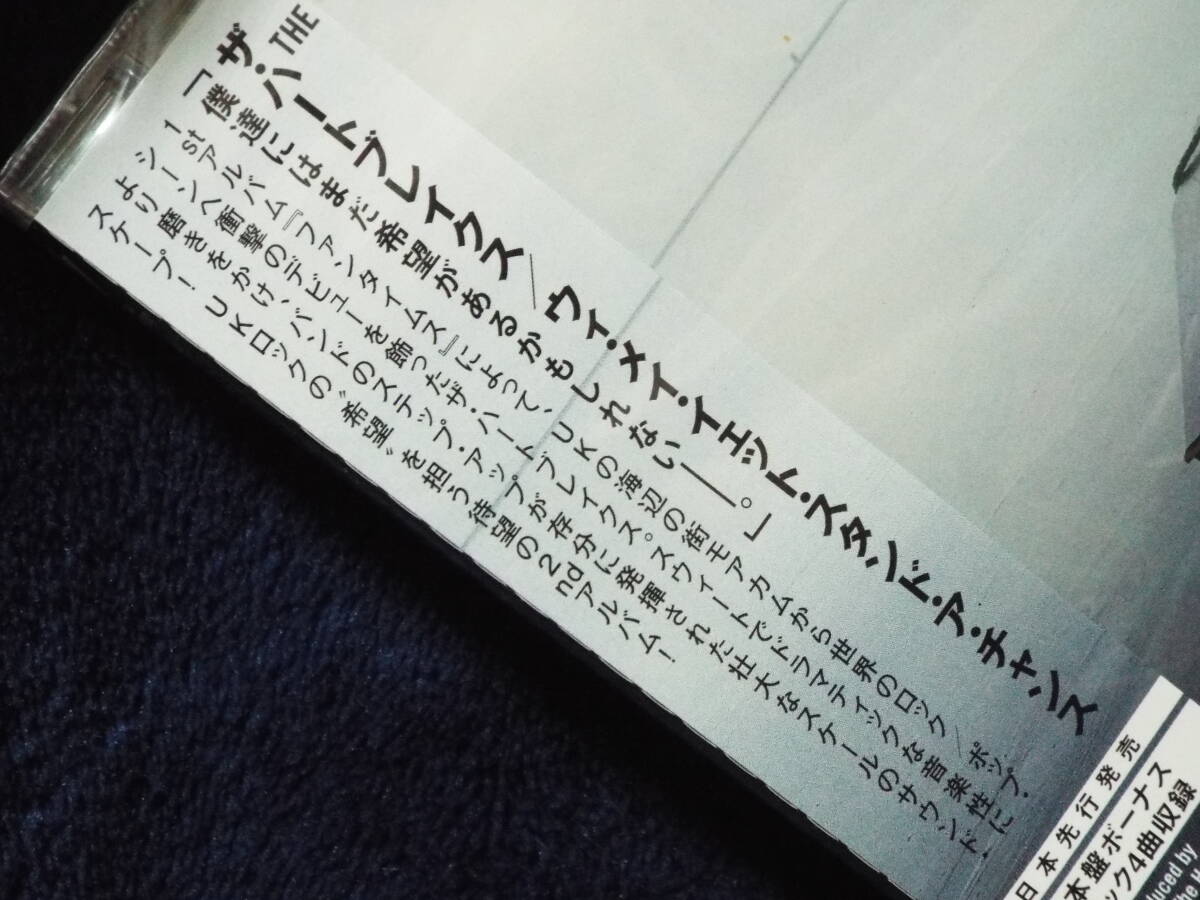 THE
ザ・ハートブレイクス／ウィ・メイ・イエット・スタンド・ア・チャンス
「僕達にはまだ希望があるかもしれない――。」
1stアルバム『ファンタイムス』によって、UKの海辺の街モアカムから世界のロック／ポップ・
シーンへ衝撃のデビューを飾ったザ・ハートブレイクス。スウィートでドラマティックな音楽性に
より磨きをかけ、バンドのステップ・アップが存分に発揮された壮大なスケールのサウンド・
スケープ！UKロックの〝希望〟を担う待望の2ndアルバム！
日本先行発売
本盤ボーナス
ック4曲収録
duced by